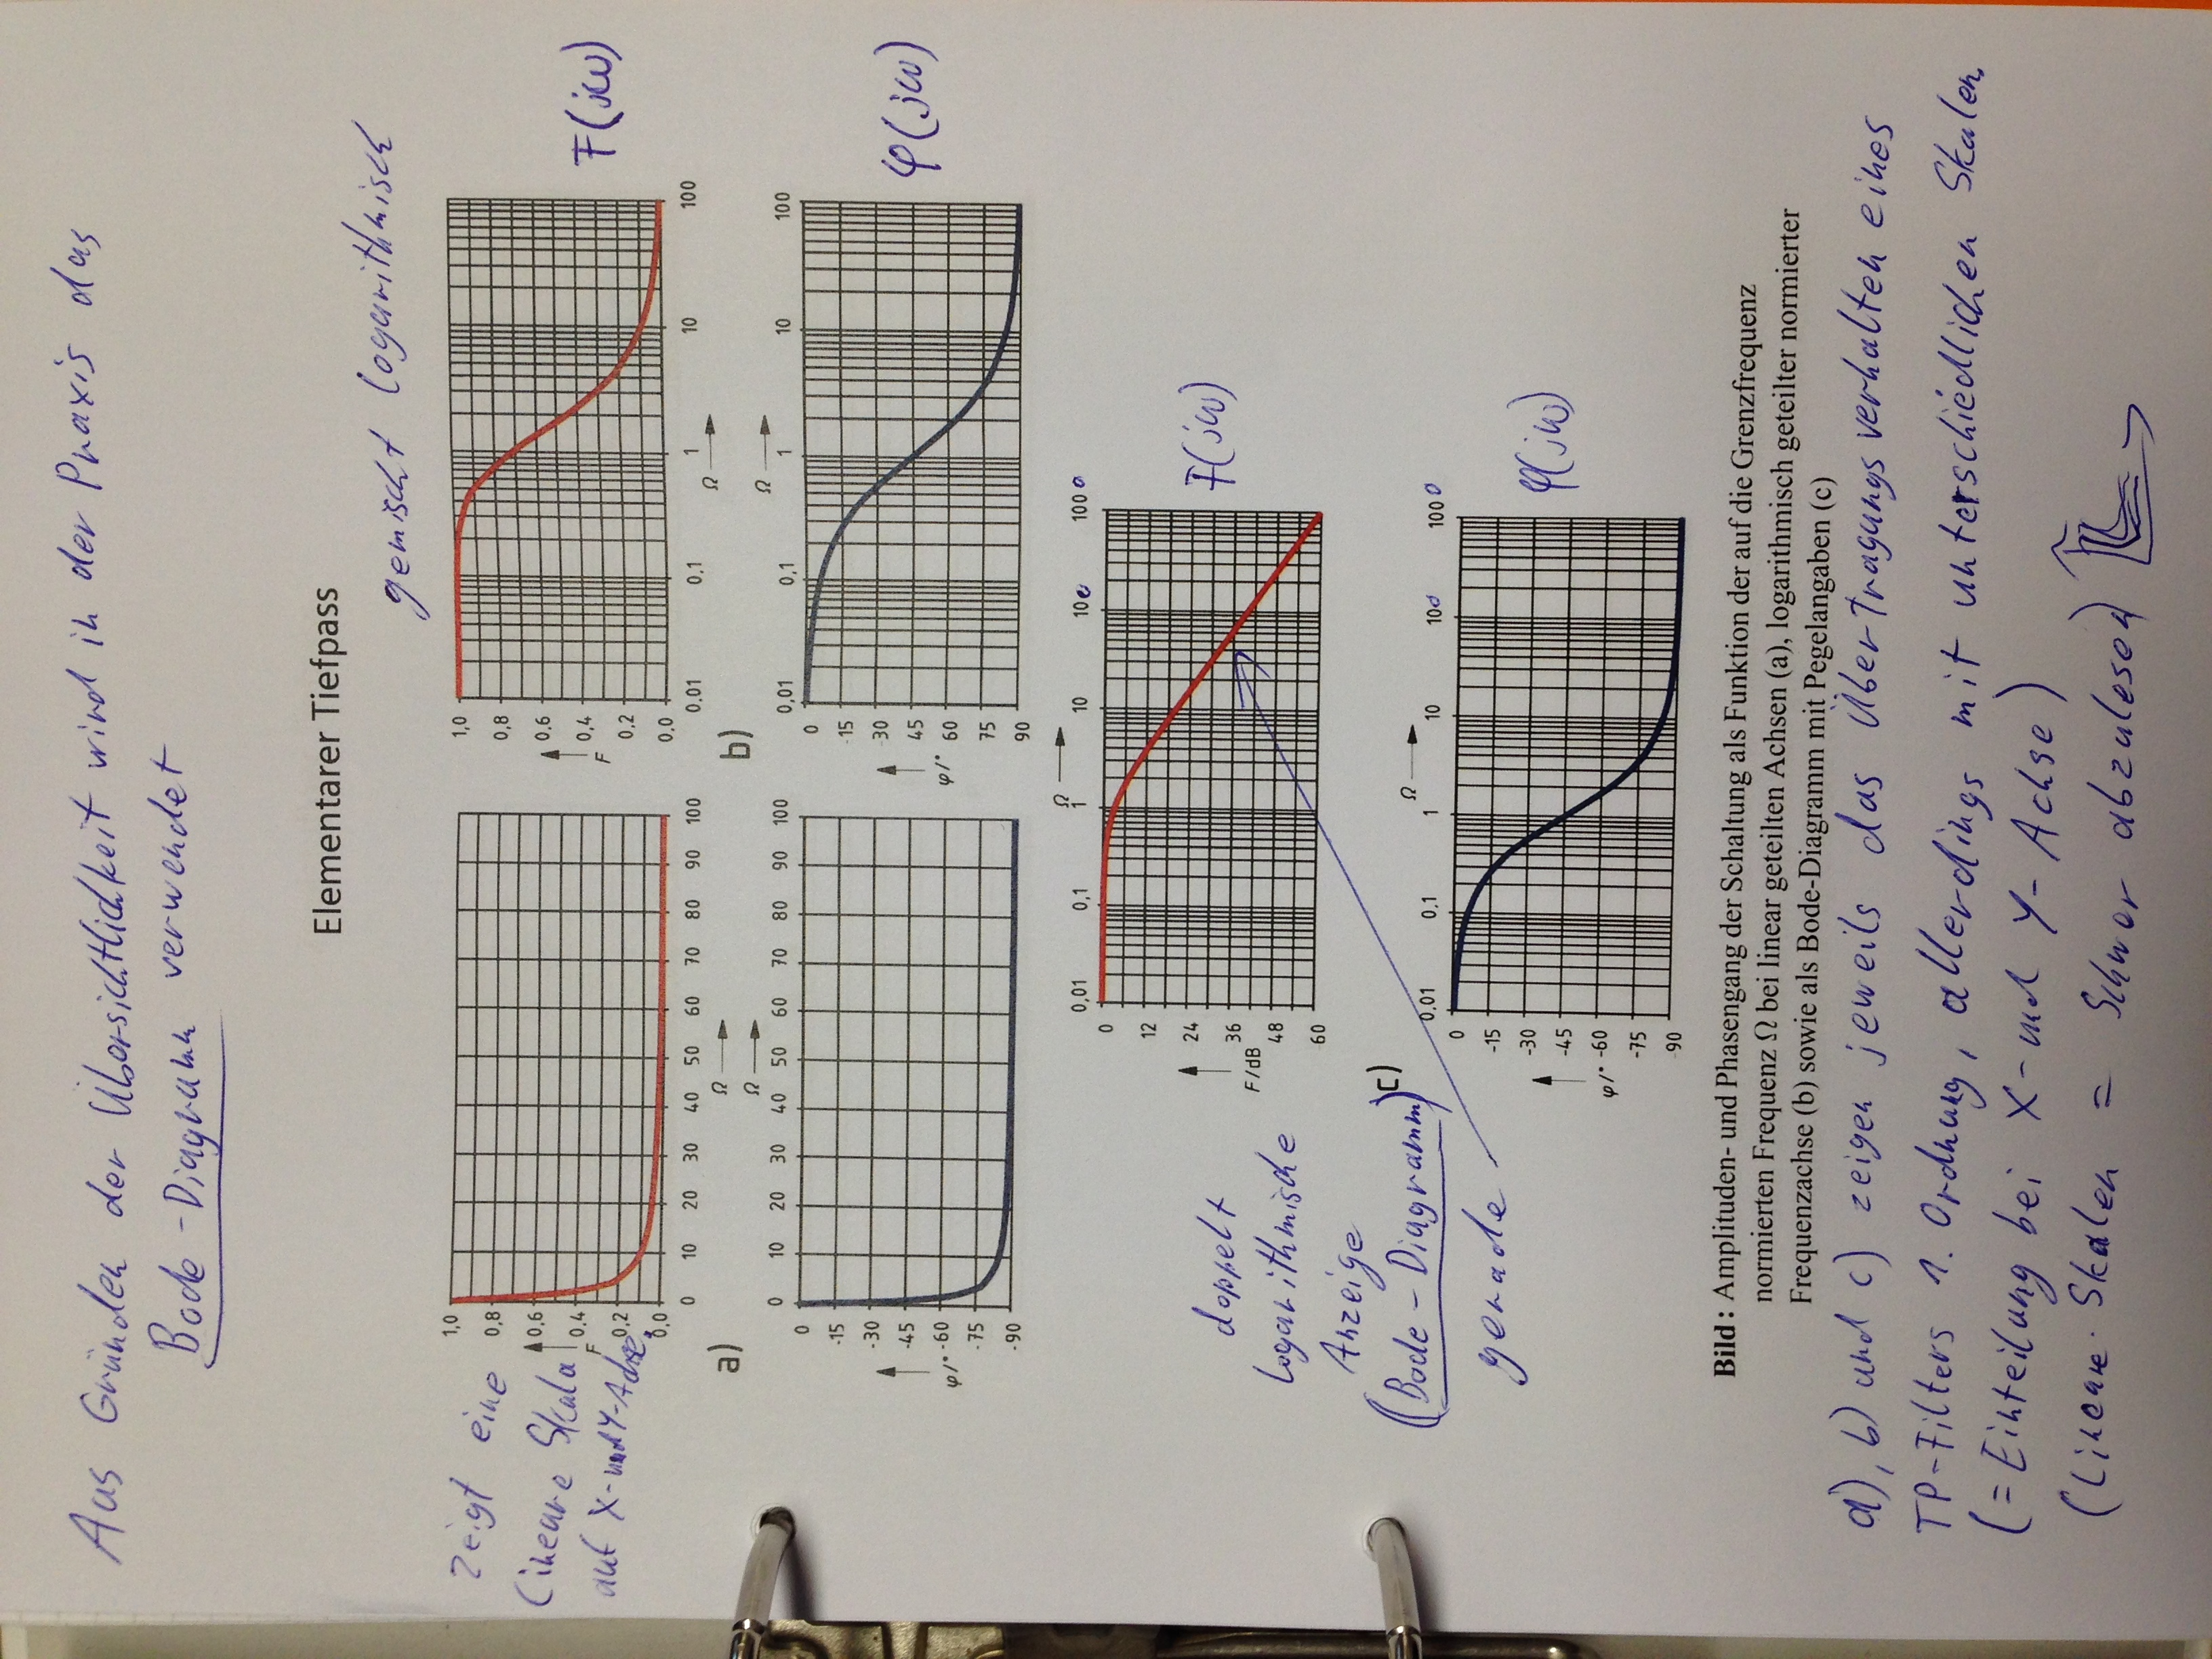 Aus Gründen der Übersichtlichkeit wird in der Praxis das
Bode-Diagramm verwendet
Elementarer Tiefpass
gemischt logarithmisch
zeigt eine
lineare Skala
auf X- und Y-Achse.
1,0
0,8
0,6
0,4
0,2
0,0
F
0 10 20 30 40 50 60 70 80 90 100
Ω
a)
1,0
0,8
0,6
0,4
0,2
0,0
F
0.01 0,1 1 10 100
Ω
b)
F(jω)
Ω
0 10 20 30 40 50 60 70 80 90 100
0
-15
-30
-45
-60
-75
-90
φ/°
Ω
0,01 0,1 1 10 100
0
15
30
45
60
75
90
φ/°
φ(jω)
Ω
0,01 0,1 1 10 100 1000
0
12
24
36
48
60
F/dB
F(jω)
doppelt
logarithmische
Anzeige
(Bode-Diagramm)
gerade
c)
Ω
0.01 0.1 1 10 100 1000
0
-15
-30
-45
-60
-75
90
φ/°
φ(jω)
Bild: Amplituden- und Phasengang der Schaltung als Funktion der auf die Grenzfrequenz
normierten Frequenz Ω bei linear geteilten Achsen (a), logarithmisch geteilter normierter
Frequenzachse (b) sowie als Bode-Diagramm mit Pegelangaben (c)
a), b) und c) zeigen jeweils das Übertragungsverhalten eines
TP-Filters 1. Ordnung, allerdings mit unterschiedlichen Skalen.
(= Einteilung bei X- und Y-Achse)
(Lineare Skalen = Schwer abzulesen)